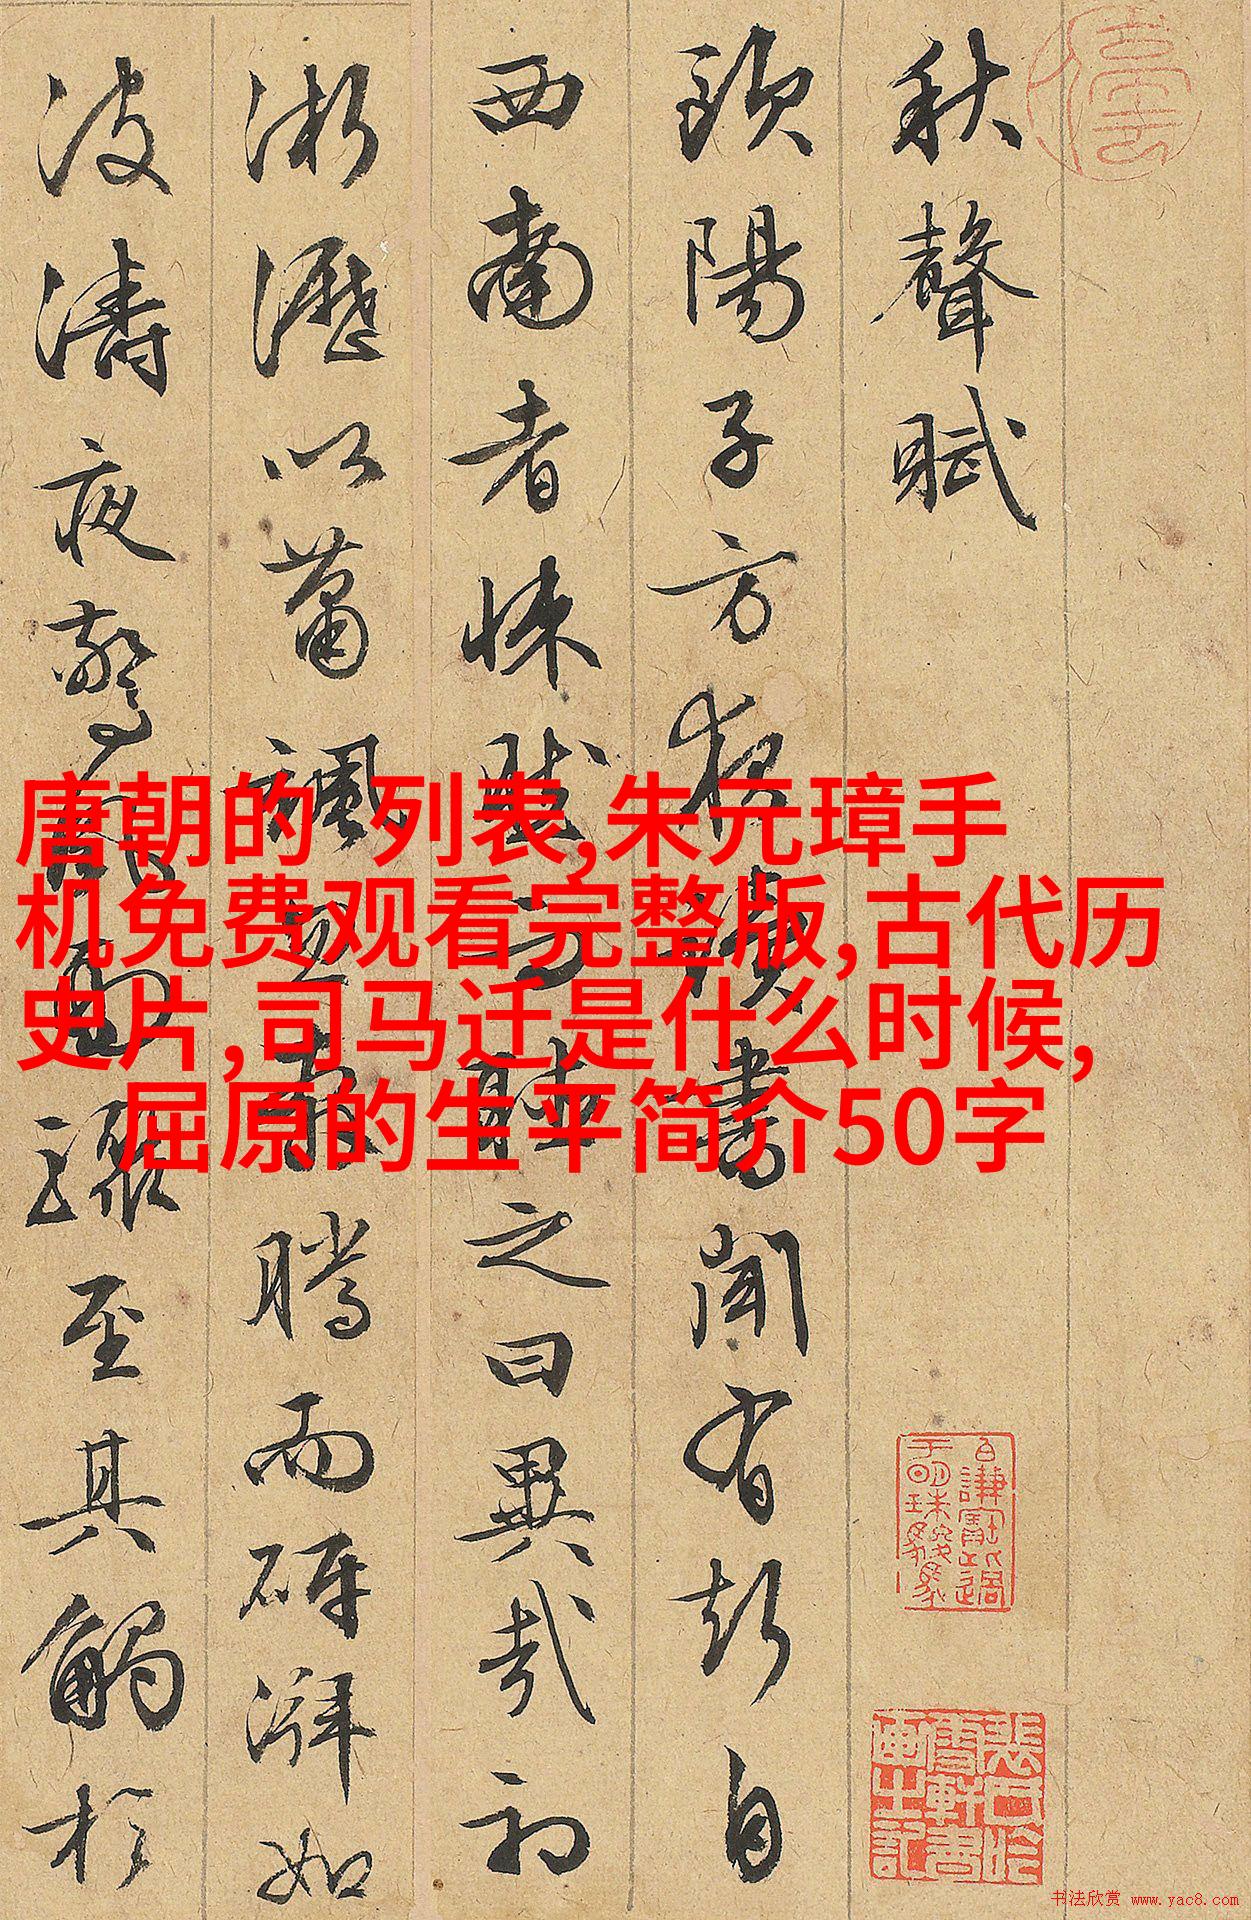 秋聲賦
歐陽子方夜讀書聞有聲自
西南者悚然而聽之曰異哉初
淅瀝以蕭颯忽奔騰而砰湃如
波濤夜驚風雨驟至其觸於
唐朝的 列表,朱元璋手
机免费观看完整版,古代历
史片,司马迁是什么时候,
屈原的生平简介50字
书法欣赏 www.yac8.com